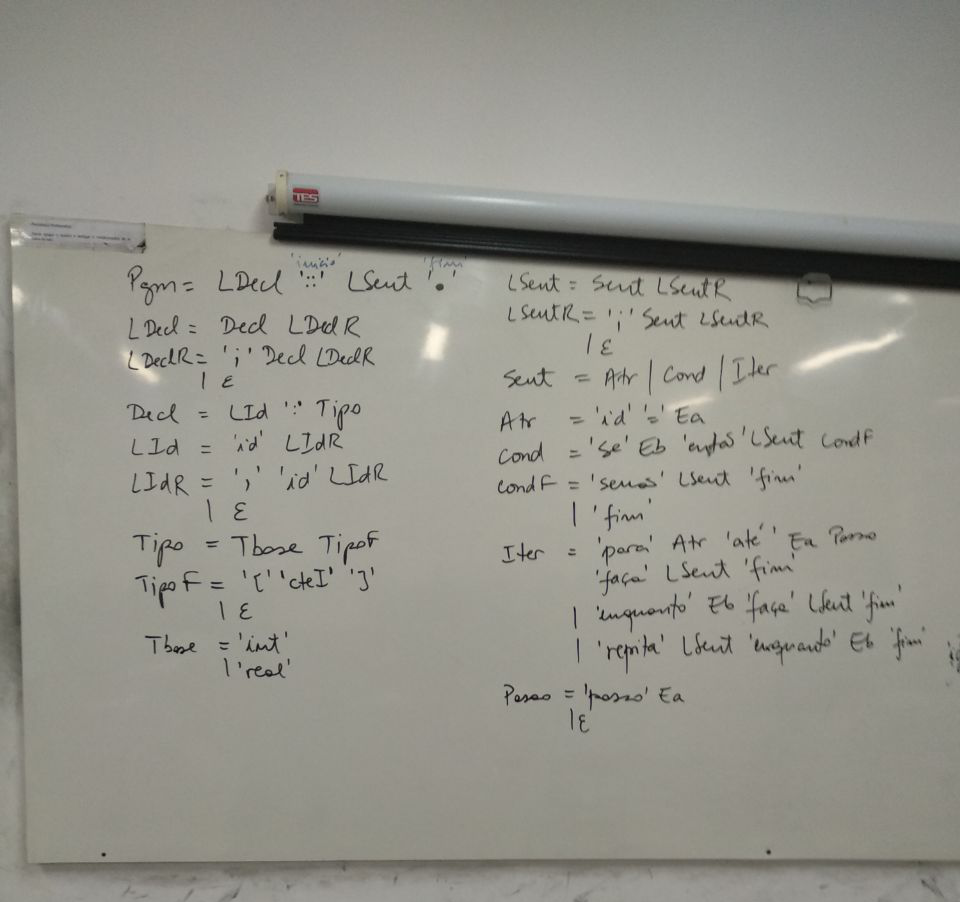 TES
'inicio' 'fim'
Pgm = LDecl '::' LSent '.'
LDecl = Decl LDeclR
LDeclR = ';' Decl LDeclR
| ε
Decl = LId ':' Tipo
LId = 'id' LIdR
LIdR = ',' 'id' LIdR
| ε
Tipo = Tbase TipoF
TipoF = '[' 'cteI' ']'
| ε
Tbase = 'int'
| 'real'
LSent = Sent LSentR
LSentR = ';' Sent LSentR
| ε
Sent = Atr | Cond | Iter
Atr = 'id' '=' Ea
Cond = 'se' Eb 'então' LSent CondF
CondF = 'senão' LSent 'fim'
| 'fim'
Iter = 'para' Atr 'até' Ea Passo
'faça' LSent 'fim'
| 'enquanto' Eb 'faça' LSent 'fim'
| 'repita' LSent 'enquanto' Eb 'fim'
Passo = 'passo' Ea
| ε